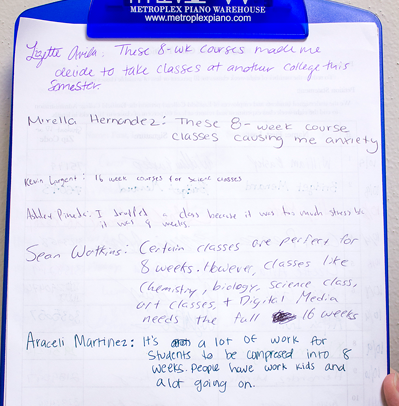 METROPLEX PIANO WAREHOUSE
www.metroplexpiano.com
These 8-wk courses made me
decide to take classes at another college this
semester.
Mirella Hernandez: These 8-week course
classes causing me anxiety
Kevin : 16 week courses for science classes
I dropped a class because it was too much stress
it was 8 weeks.
Sean Watkins: Certain classes are perfect for
8 weeks. However, classes like
Chemistry, biology, science class,
art classes, + Digital Media
needs the full 16 weeks
Araceli Martinez: It's a lot of work for
students to be compresed into 8
weeks. People have work kids and
a lot going on.